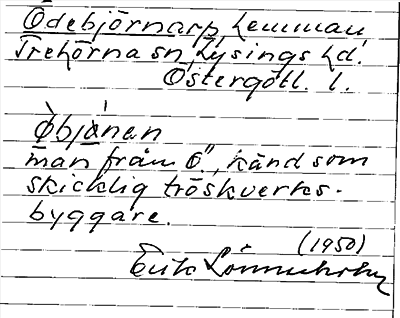 Ödebjörnarp, hemman,
Trehörna sn, Lysings hd.
Östergötl. l.
Øbjànen
man från Ö", känd som
skicklig tröskverks-
byggare.
(1950)
Erik